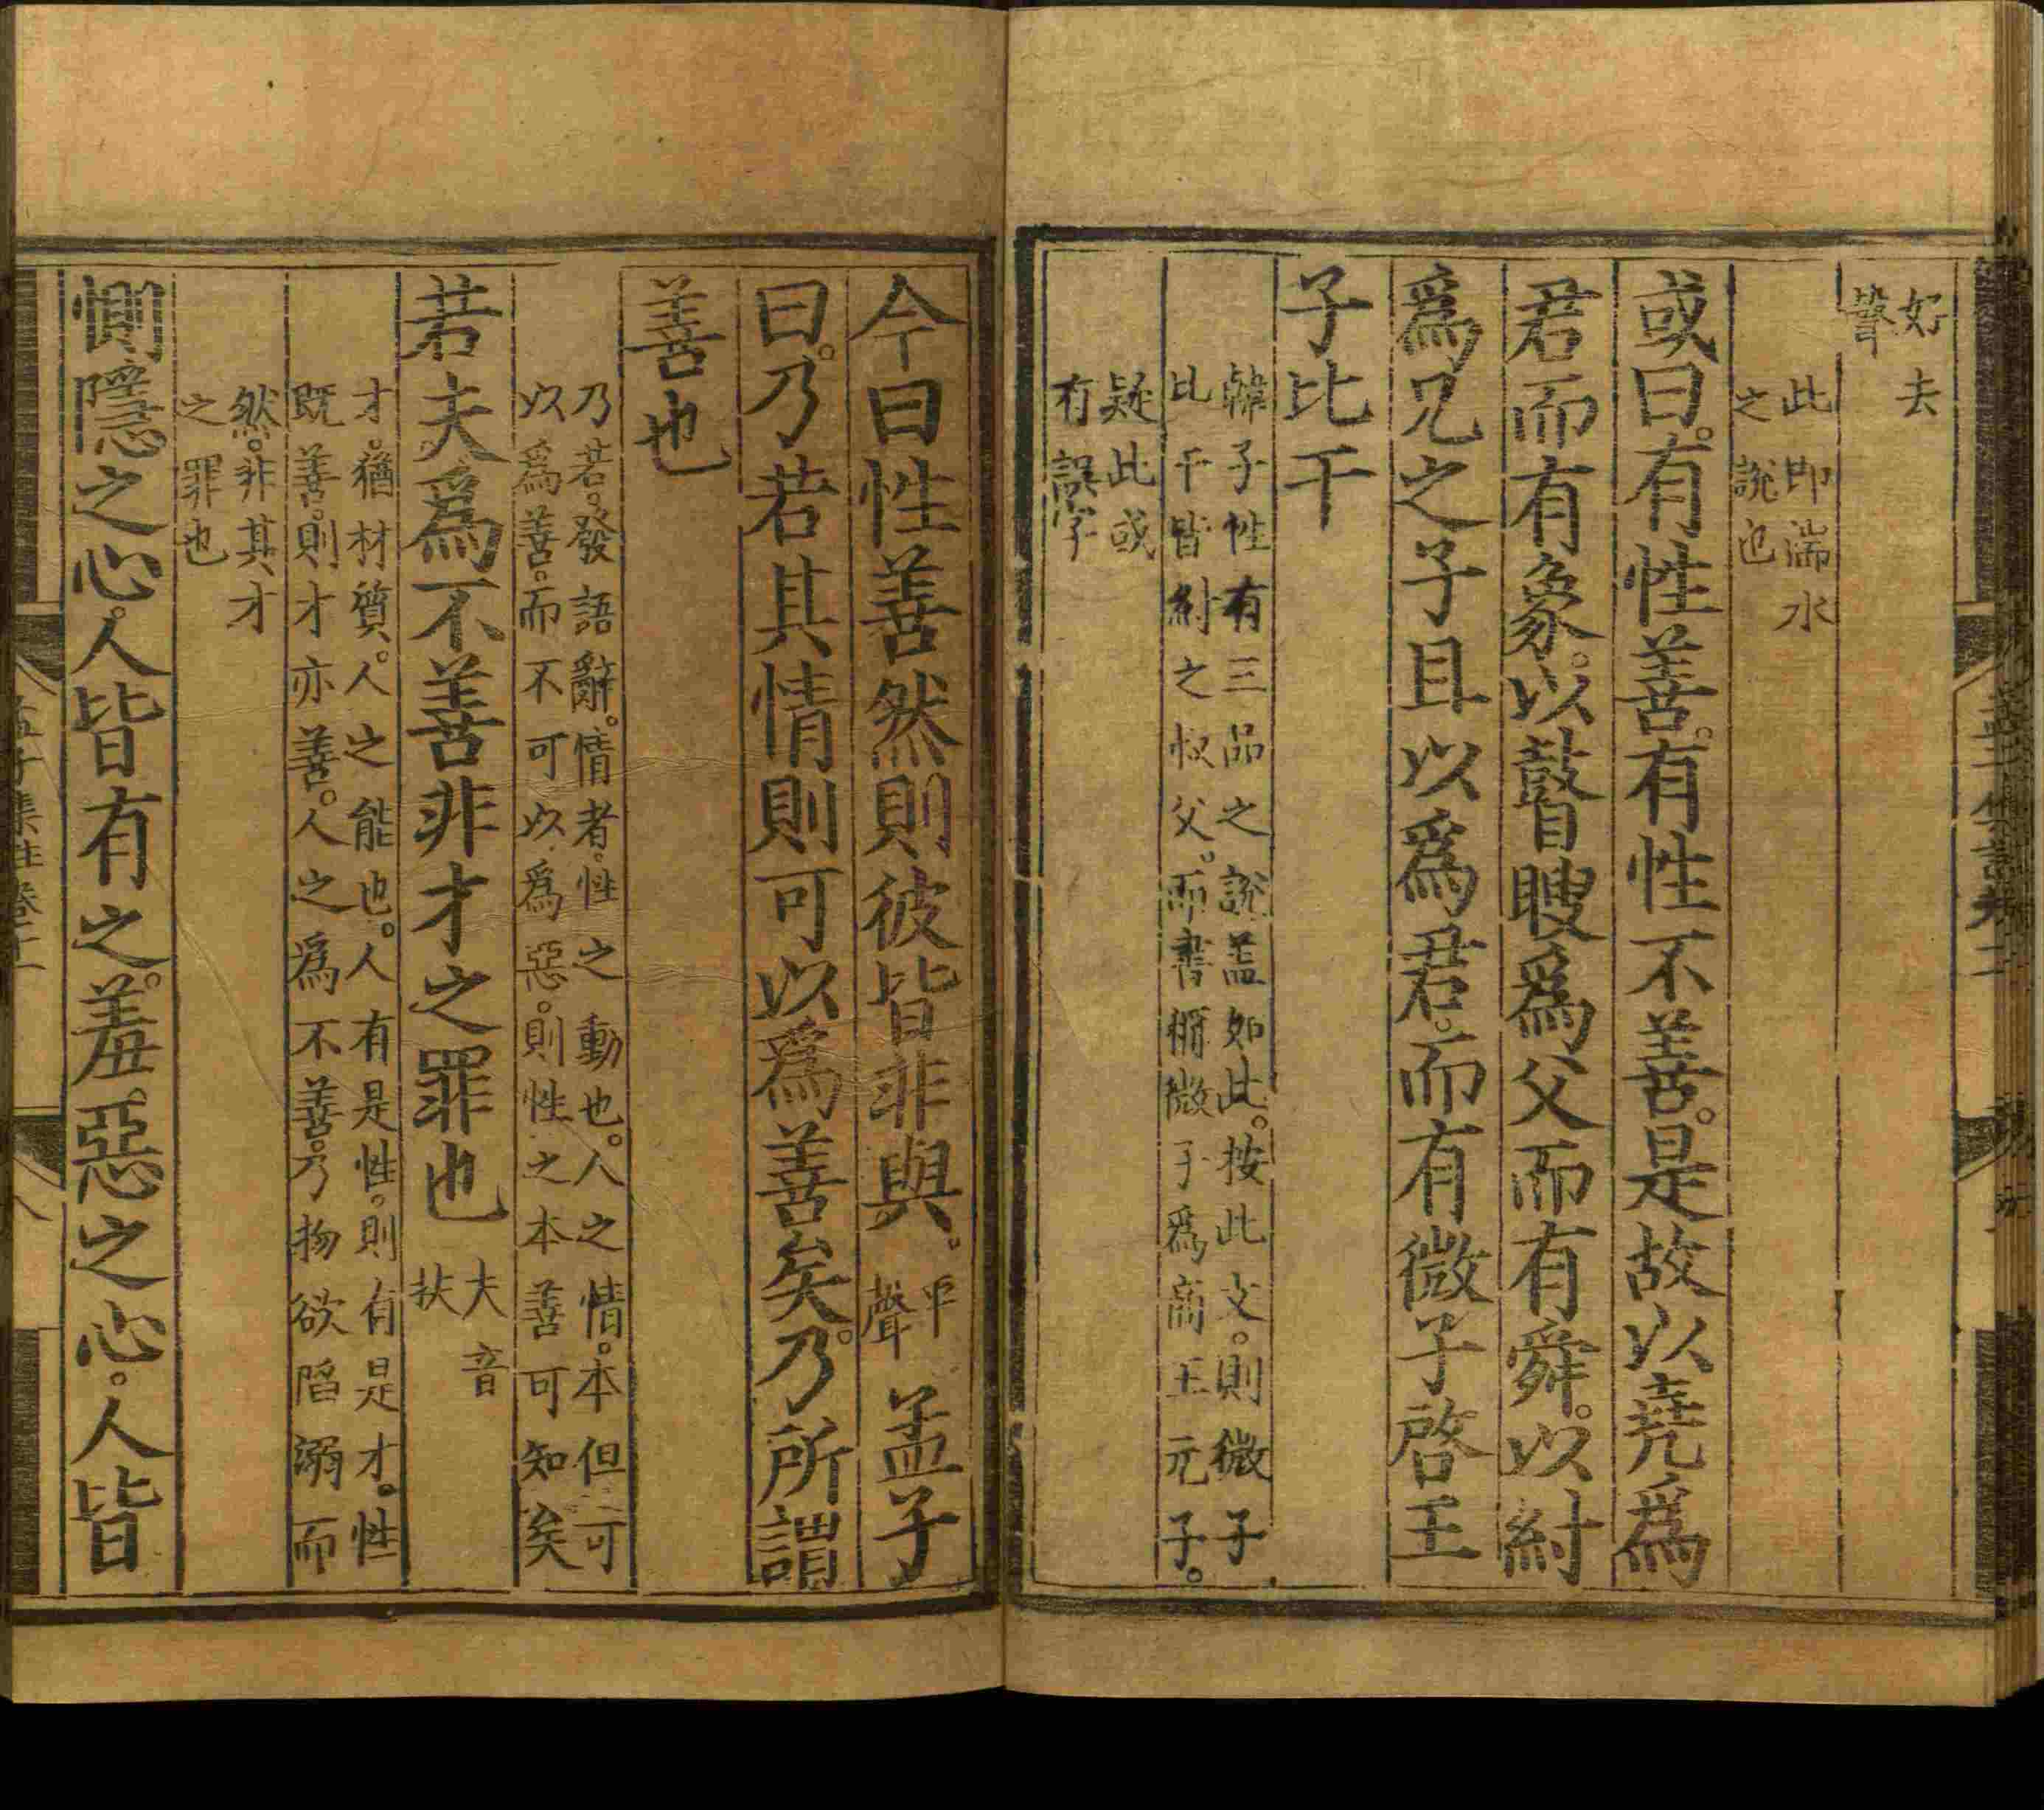 好去
聲
此即湍水
之說也
或曰。有性善。有性不善。是故以堯爲
君而有象。以瞽瞍爲父而有舜。以紂
爲兄之子且以爲君。而有微子啓王
子比干
韓子性有三品之說蓋如此。按此文。則微子
比干皆紂之叔父。而書稱微子爲商王元子。
疑此或
有誤字
今曰性善然則彼皆非與。平聲孟子
曰。乃若其情則可以爲善矣。乃所謂
善也
乃若。發語辭。情者。性之動也。人之情。本但可
以爲善。而不可以爲惡。則性之本善可知矣
若夫爲不善非才之罪也夫音扶
才。猶材質。人之能也。人有是性。則有是才。性
既善。則才亦善。人之爲不善。乃物欲陷溺而
然。非其才
之罪也
惻隱之心。人皆有之。羞。惡之心。人皆
孟子集註卷十一
八